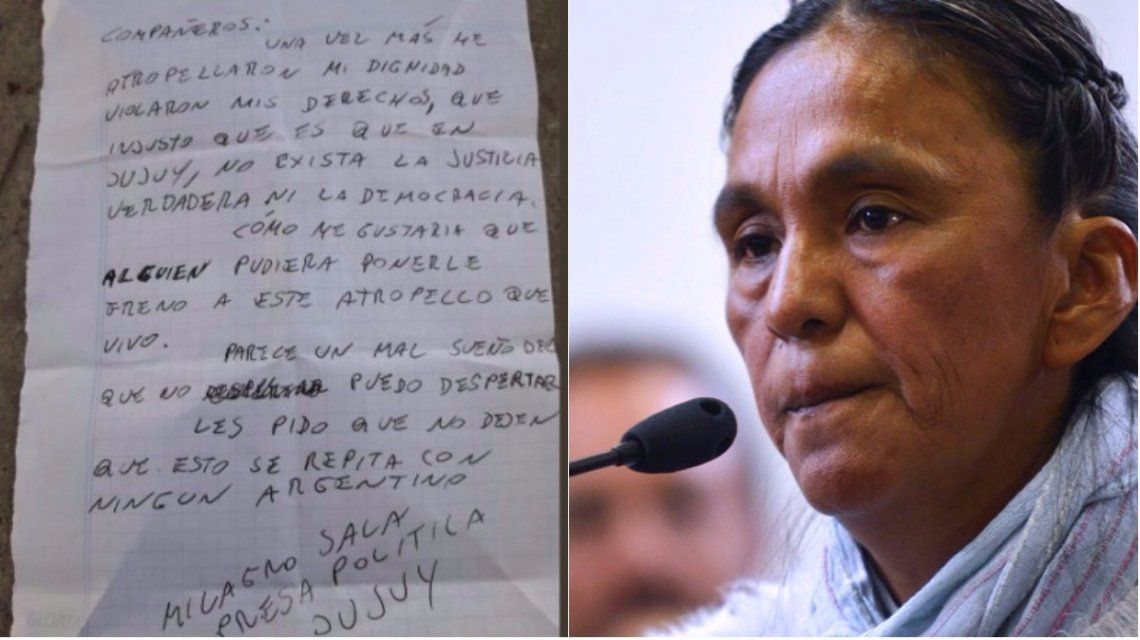 COMPAÑEROS:
UNA VEL MÁS ME
ATROPELLARON MI DIGNIDAD
VIOLARON MIS DERECHOS, QUE
INJUSTO QUE ES QUE EN
JUJUY, NO EXISTA LA JUSTICIA
VERDADERA NI LA DEMOCRACIA.
CÓMO ME GUSTARIA QUE
ALGUIEN PUDIERA PONERLE
FRENO A ESTE ATROPELLO QUE
VIVO.
PARECE UN MAL SUEÑO DEL
QUE NO PUEDO DESPERTAR
LES PIDO QUE NO DEJEN
QUE ESTO SE REPITA CON
NINGUN ARGENTINO
MILAGRO SALA
PRESA POLITICA
JUJUY